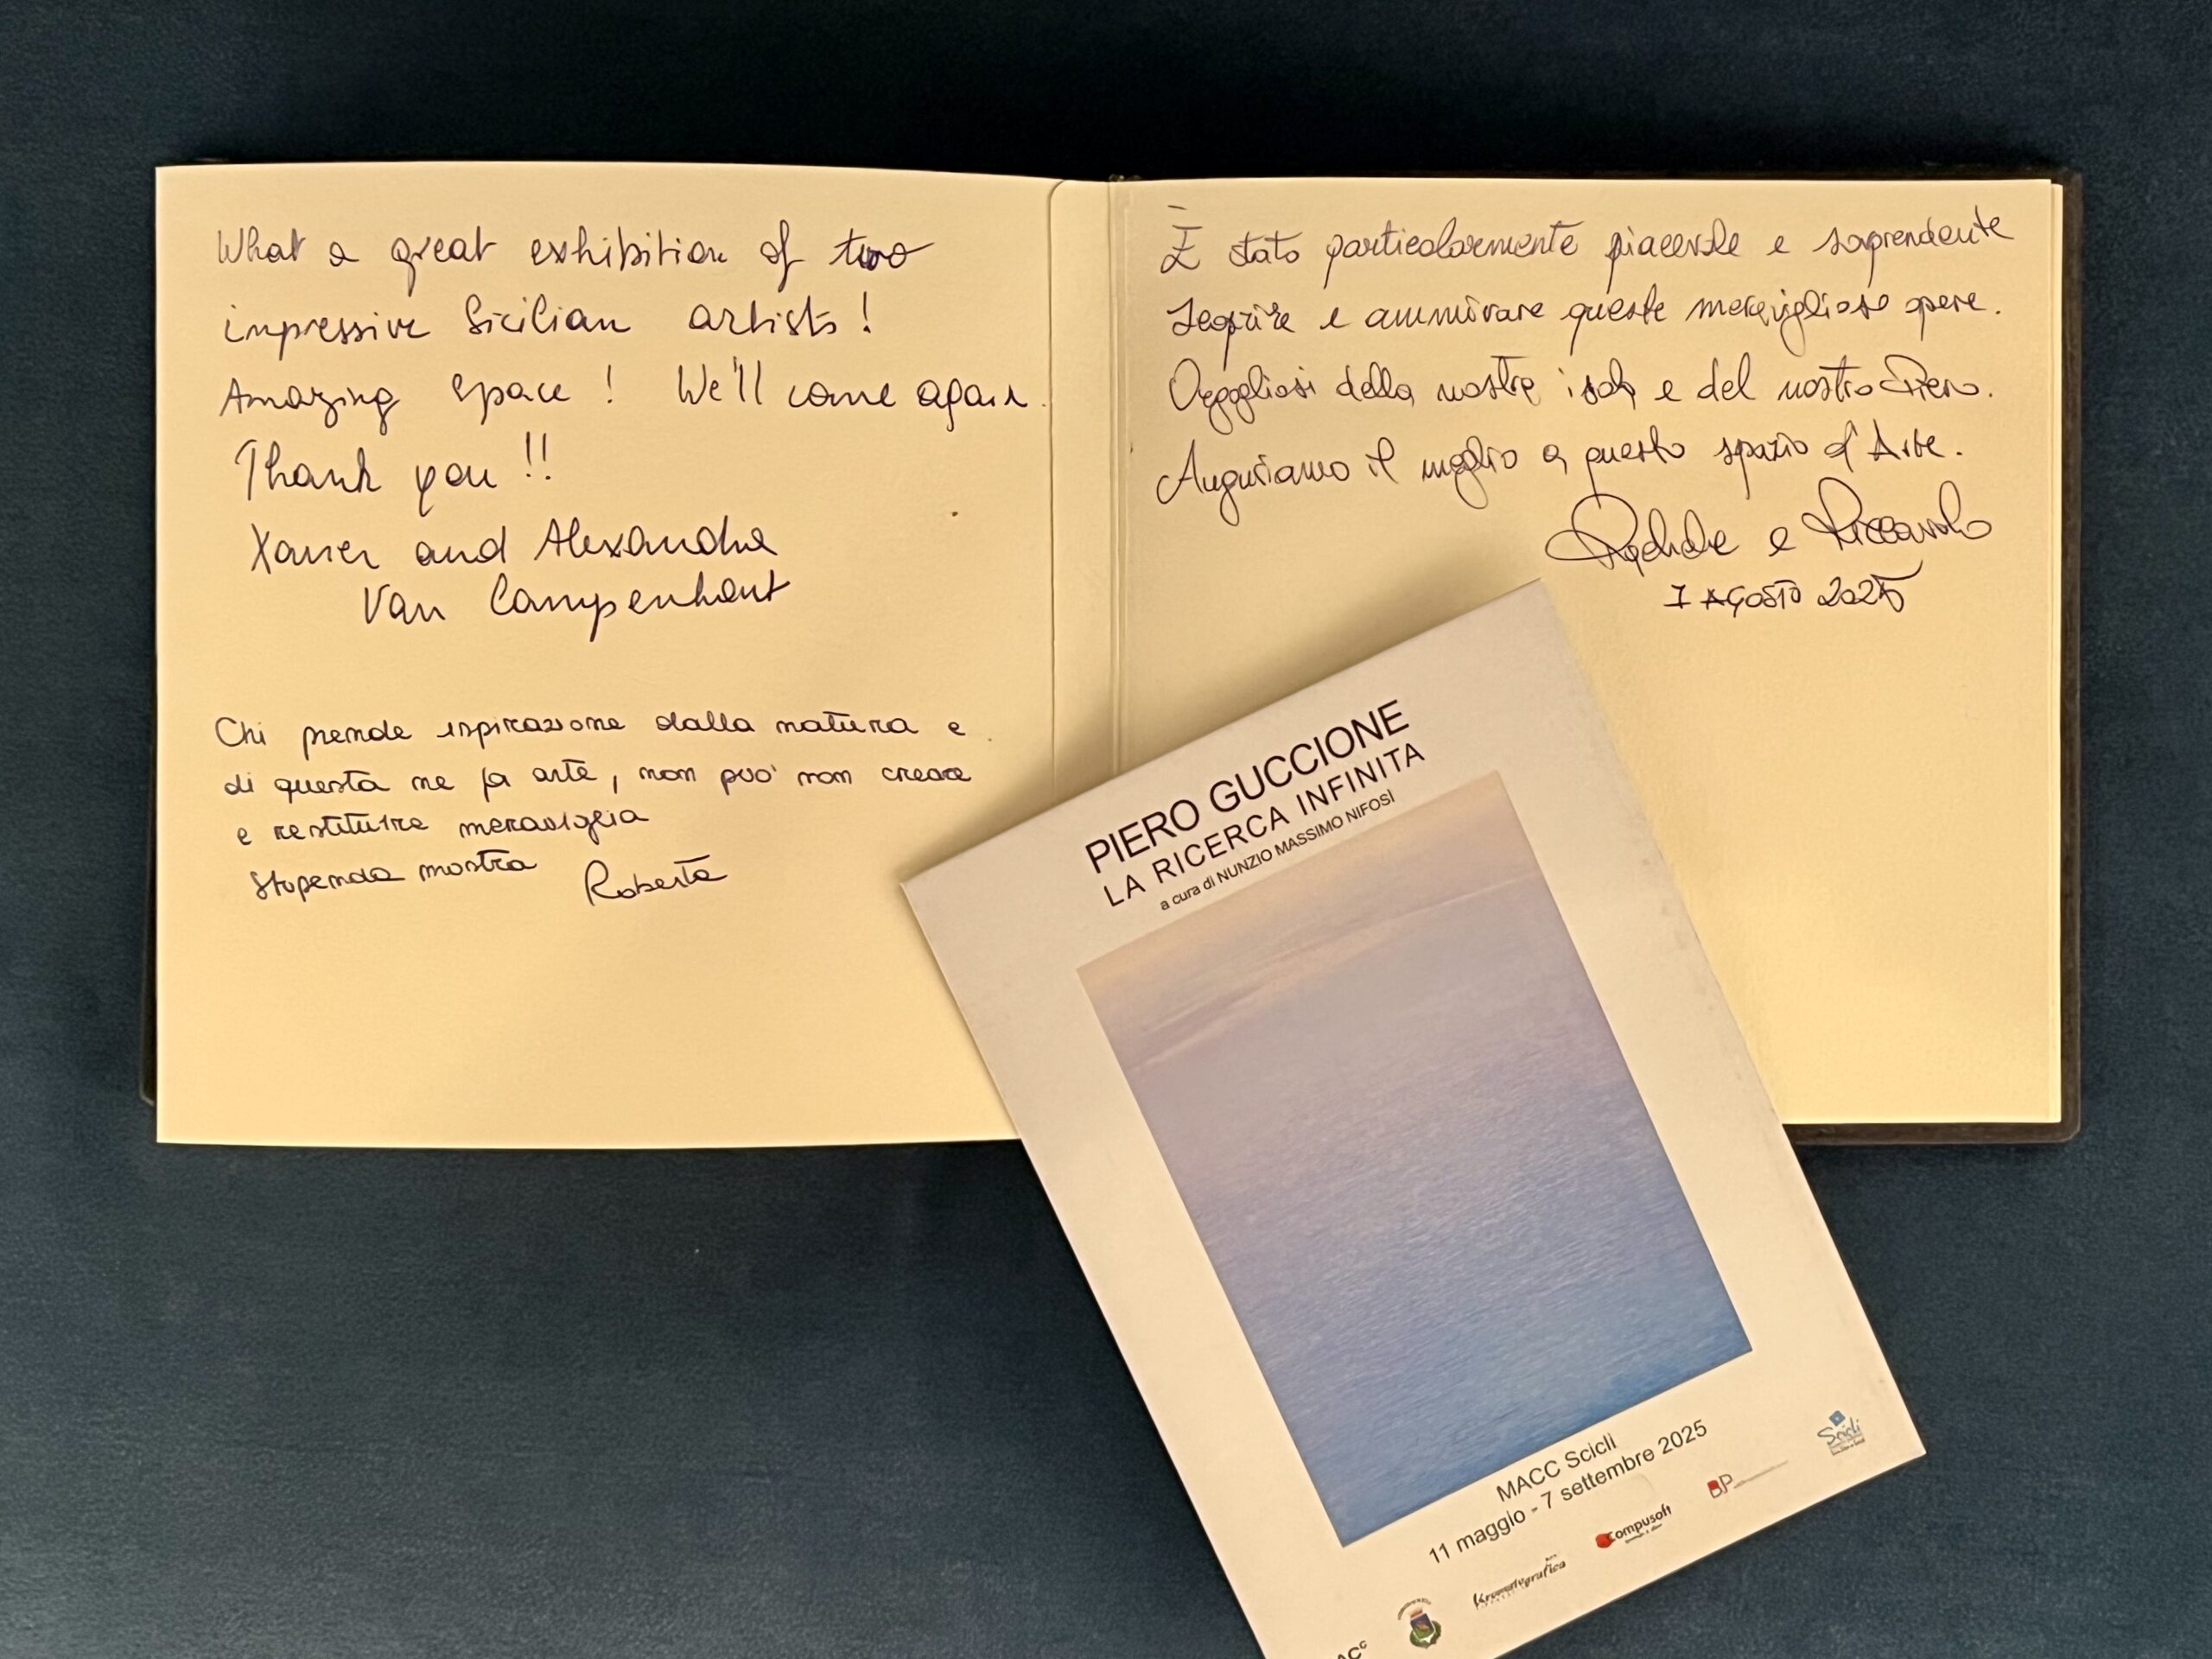 What a great exhibition of two
impressive Sicilian artists!
Amazing space! We'll come again.
Thank you!!
Xavier and Alexandra
Van Campenhout
Chi prende ispirazione dalla natura e
di questa ne fa arte, non può non creare
e restituire meraviglia
Stupenda mostra Roberta
È stato particolarmente piacevole e sorprendente
scoprire e ammirare queste meravigliose opere.
Orgogliosi della nostra isola e del nostro Piero.
Auguriamo il meglio a questo spazio d'Arte.
e Riccardo
7 AGOSTO 2025
PIERO GUCCIONE
LA RICERCA INFINITA
a cura di NUNZIO MASSIMO NIFOSÌ
MACC Scicli
11 maggio - 7 settembre 2025
Scicli
BP
Compusoft
Kromatografica